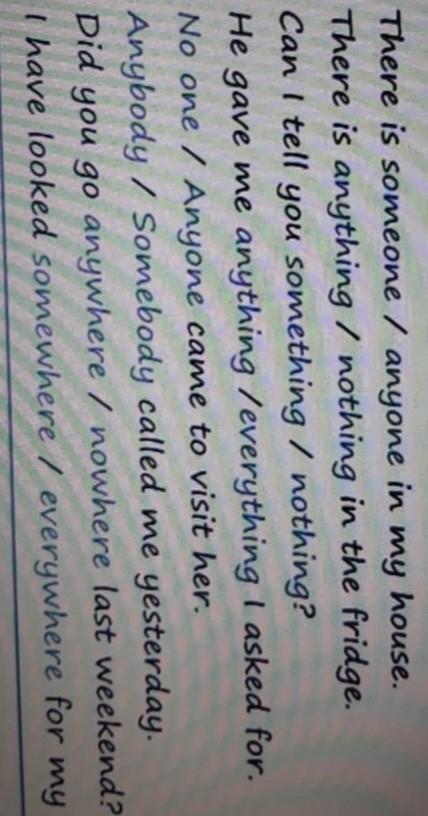 There is someone / anyone in my house.
There is anything / nothing in the fridge.
Can I tell you something / nothing?
He gave me anything /everything I asked for.
No one / Anyone came to visit her.
Anybody / Somebody called me yesterday.
Did you go anywhere / nowhere last weekend?
I have looked somewhere / everywhere for my